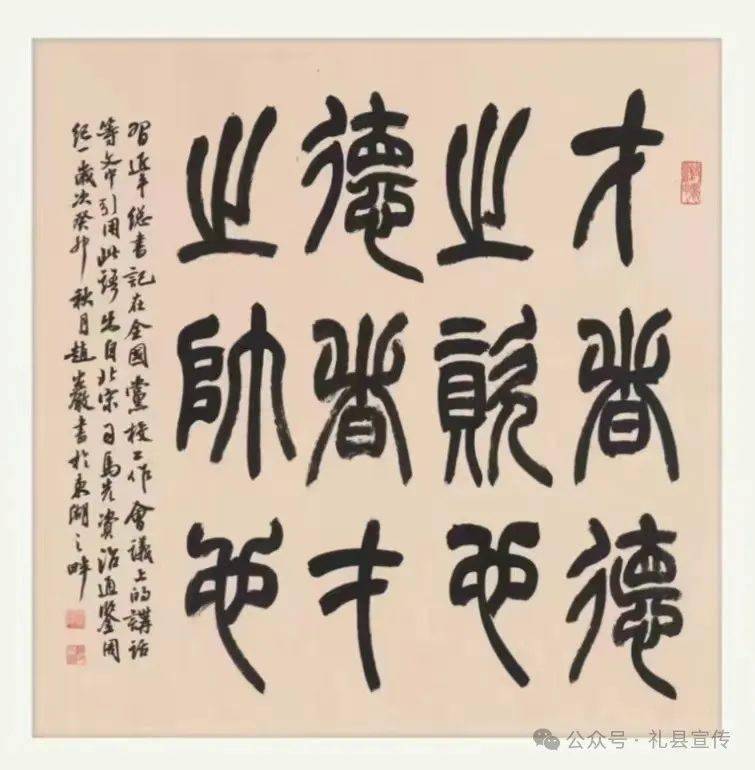 才者德
之資也
德者才
之帥也
習近平總書記在全國黨校工作會議上的講話
等文中引用此語出自北宋司馬光資治通鑒周
紀一歲次癸卯秋月趙巖書於東湖之畔
公众号 · 礼县宣传